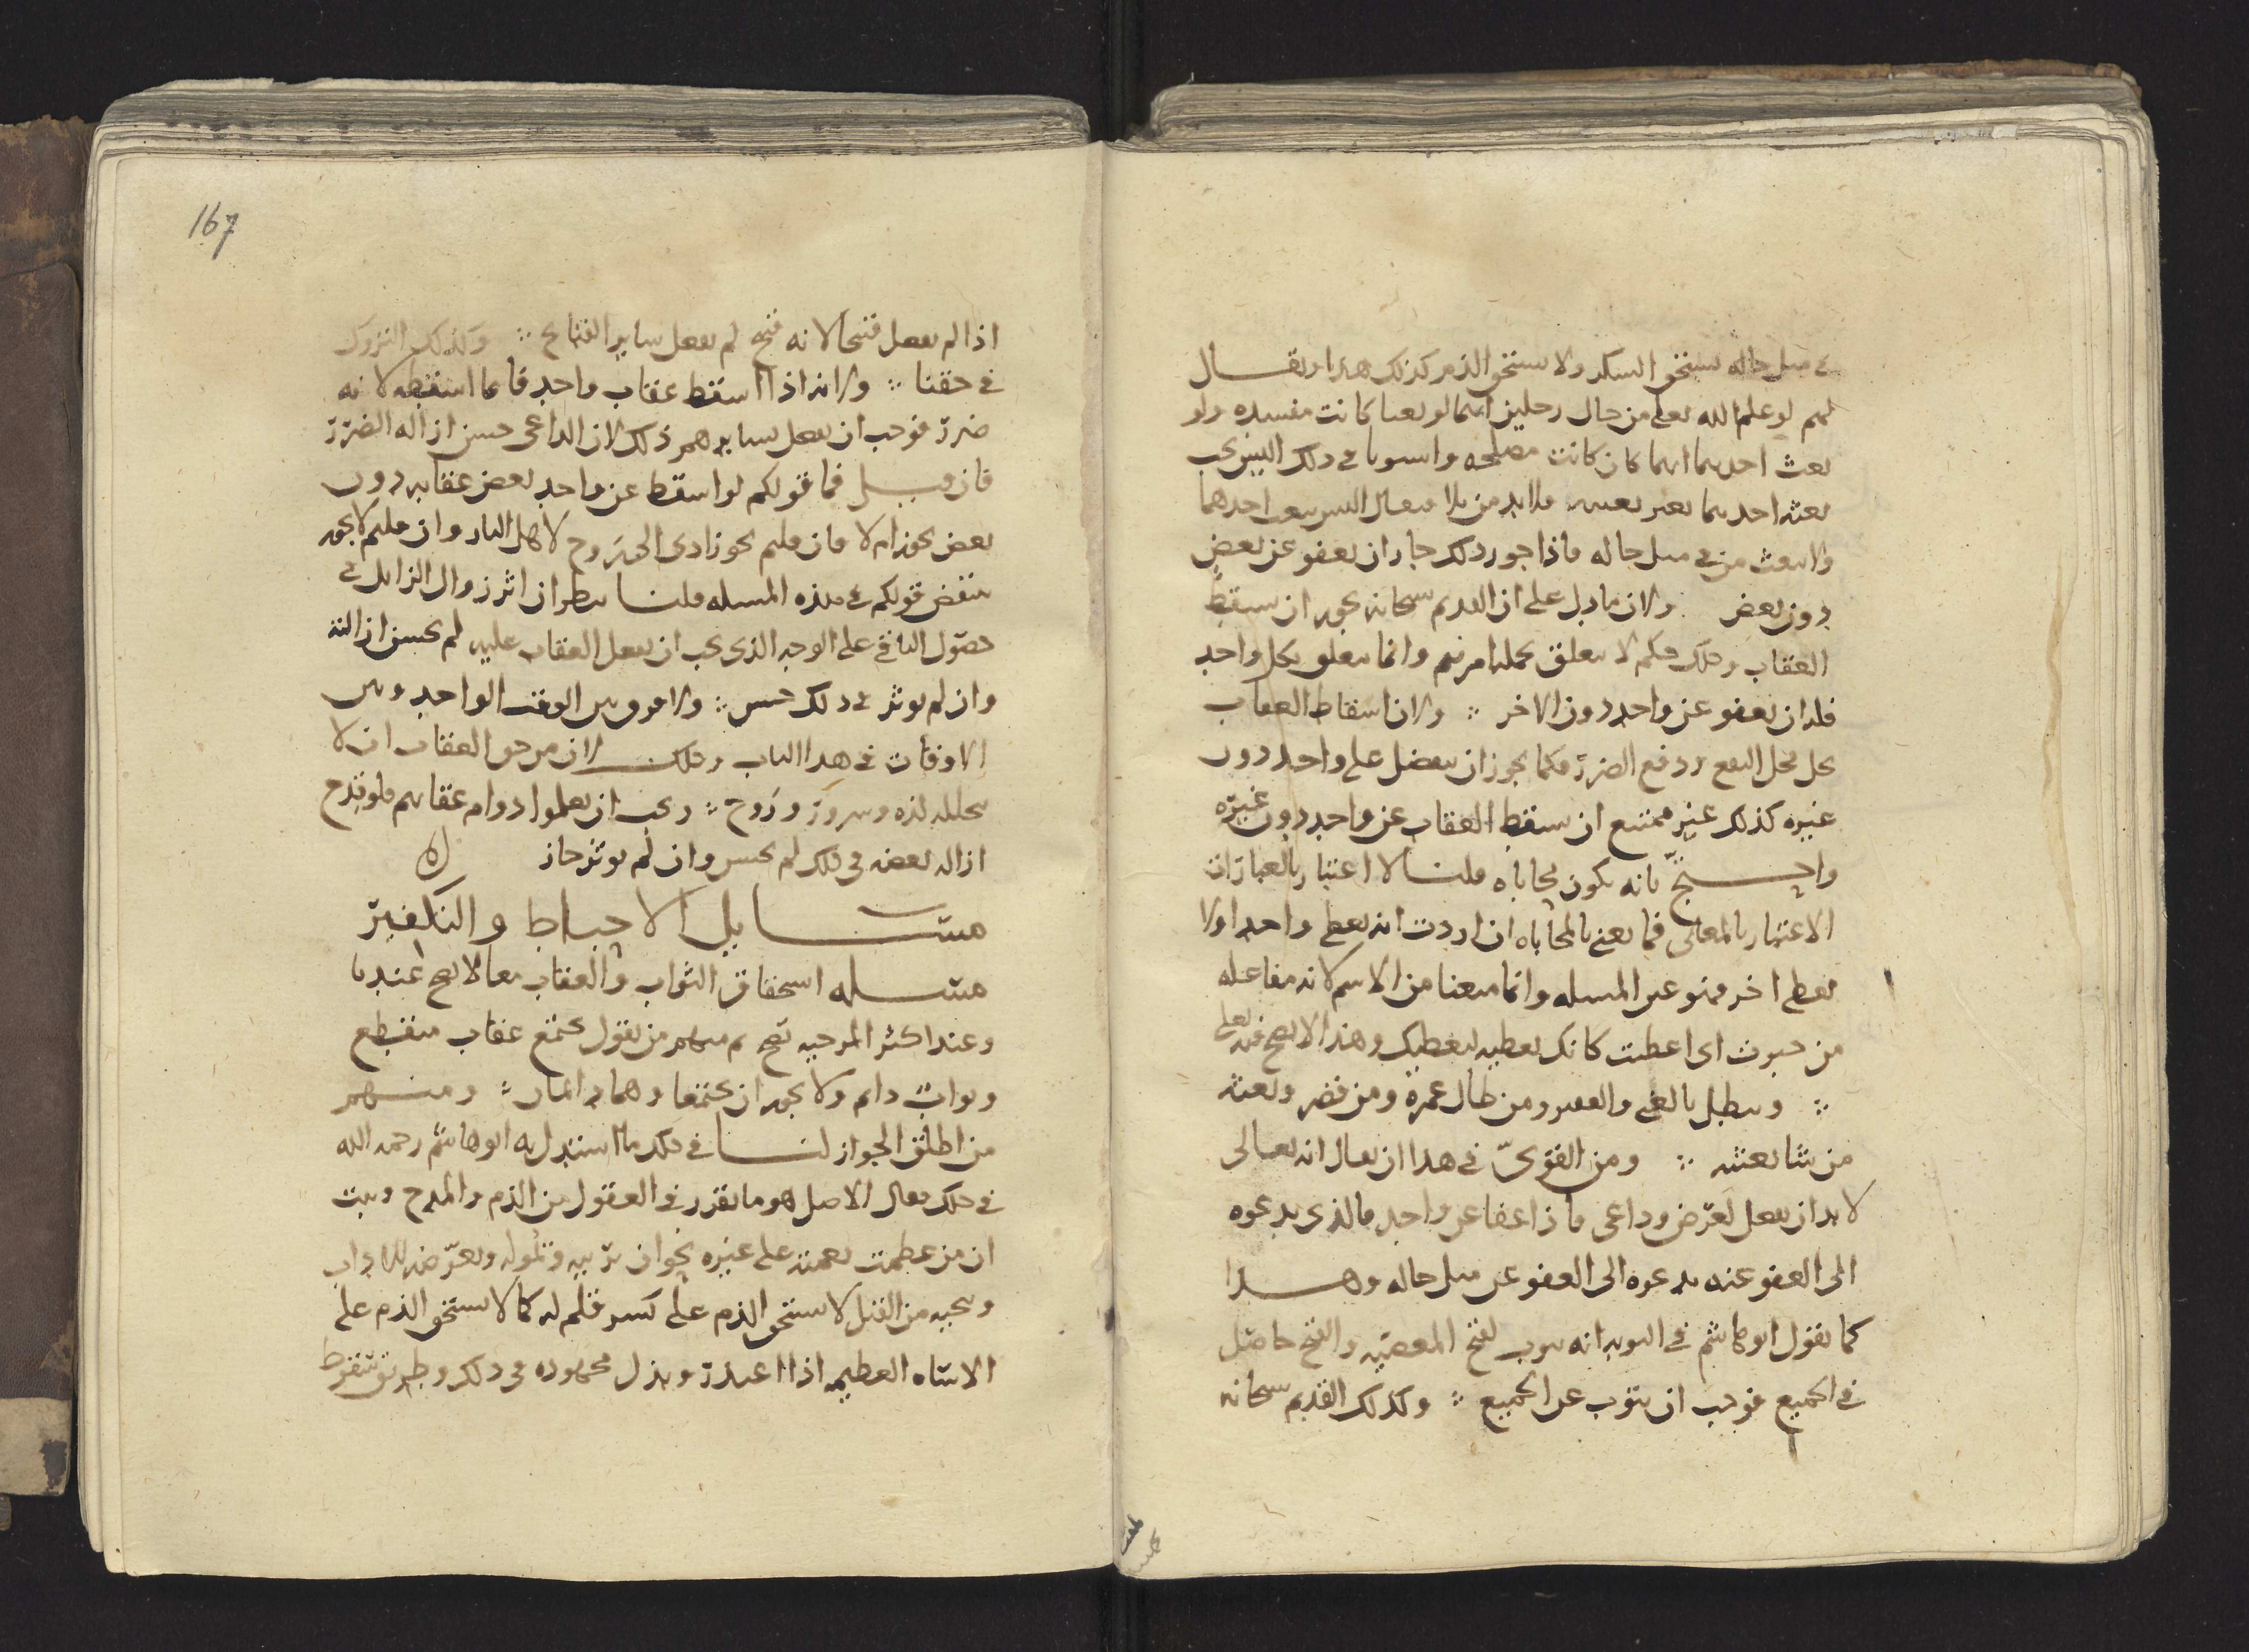 في مثل حاله يستحق الشكر ولا يستحق الذم كذلك هذا ويقال
لهم لو علم الله تعلى من حال رجلين انهما لو بعثا كانت مفسده ولو
بعث احدهما ايهما كان كانت مصلحه واستويا في ذلك اليس يجب
بعثه احدهما بغير بعينه فلا بد من بلا فيقال اليس يبعث احدهما
ولا يبعث من في مثل حاله فاذا جوز ذلك جاز ان يعفو عن بعض
دون بعض ولان ما دل على ان القديم سبحانه يجوز ان يسقط
العقاب وذلك حكم لا يتعلق بجملة امرهم وانما يتعلق بكل واحد
فله ان يعفو عن واحد دون الاخر ∴ ولان اسقاط العقاب
يحل محل النفع ودفع الضرر فكما يجوز ان يتفضل على واحد دون
غيره كذلك غير ممتنع ان يسقط العقاب عن واحد دون غيره
واحتج بانه يكون محاباه قلنا لا اعتبار بالعبارات
الاعتبار بالمعاني فما يعني بالمحاباه ان اردت انه يعطي واحدا ولا
يعطي اخر فهو عين المسله وانما منعنا من الاسم لانه مفاعله
من حبوت اي اعطيت كانك تعطيه ليعطيك وهذا لا يصح فيه تعلى
∴ ويبطل بالغني والفقير ومن طال عمره ومن قصر وبعثه
من شا بعثته ∴ ومن القوي في هذا ان يقال انه تعالى
لا بد ان يفعل لغرض وداعي فاذا عفا عن واحد فالذي يدعوه
الى العفو عنه يدعوه الى العفو عن مثل حاله وهذا
كما نقول ابو هاشم في التوبه انه يتوب لقبح المعصيه والقبح حاصل
في الجميع فوجب ان يتوب عن الجميع ∴ وكذلك القديم سبحانه
167
اذا لم يفعل قبيحا لانه قبيح لم يفعل ساير القبايح ∴ وكذلك التروك
في حقنا ∴ ولانه اذا اسقط عقاب واحد فانما اسقطه لانه
ضرر فوجب ان يفعل بسايرهم ذلك لان الداعي حسن ازاله الضرر
فان قيل فما قولكم لو اسقط عن واحد بعض عقابه دون
بعض يجوز ام لا فان قلتم يجوز ادى الى روح لاهل النار وان قلتم لا يجوز
ينقض قولكم في هذه المسله قلنا ينظر ان اثر زوال الزايل في
حصول الباقي على الوجه الذي يجب ان يفعل العقاب عليه لم يحسن ازالته
وان لم يوثر في ذلك حسن ∴ ولا فرق بين الوقت الواحد وبين
الاوقات في هذا الباب وذلك لان من حق العقاب ان لا
يتخلله لذه وسرور وروح ∴ ويجب ان يعلموا دوام عقابهم فلو قدح
ازاله بعضه في ذلك لم يحسن وان لم يوثر جاز
مسايل الاحباط والتكفير
مسله استحقاق الثواب والعقاب معا لا يصح عندنا
وعند اكثر المرجيه يصح ثم منهم من يقول يجتمع عقاب منقطع
وثواب دايم ولا يجوز ان يجتمعا وهما دايمان ∴ ومنهم
من اطلق الجواز لنا في ذلك ما استدل به ابو هاشم رحمه الله
في ذلك فقال الاصل هو ما تقرر في العقول من الذم والمدح وثبت
ان من عظمت نعمته على غيره نحو ان يربيه ويموله ويعرضه للاداب
وينجيه من القتل لا يستحق الذم على كسر قلم له كما لا يستحق الذم على
الاساه العظيمه اذا اعتذر وبذل مجهوده في ذلك وطريق سقوط